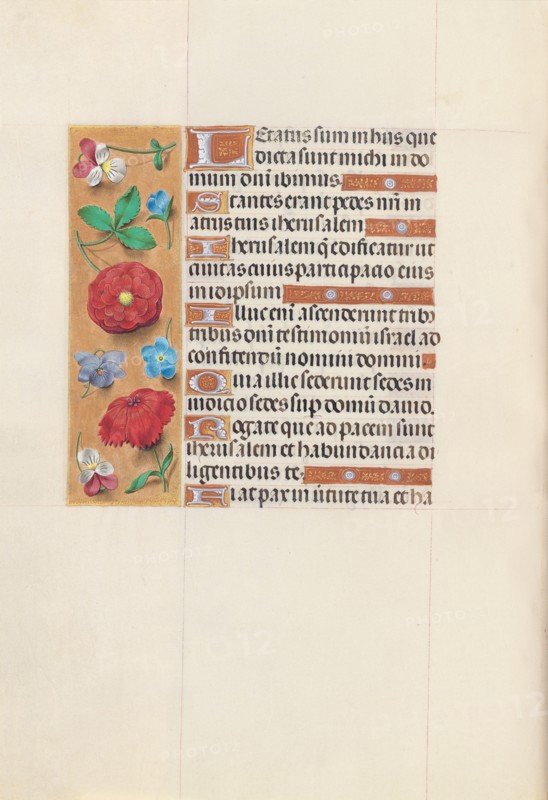 Letatus sum in hiis que
dicta sunt michi in do
mum dñi ibimus.
Stantes erant pedes nr̃i in
atrijs tuis iherusalem
Iherusalem q̃ edificatur ut
ciuitas cuius participacio eius
in idipsum
Illuc eni ascenderunt tribꝫ
tribus dñi testimoniũ israel ad
confitendũ nomini domini.
Quia illic sederunt sedes in
iudicio sedes sup domũ dauid.
Rogate que ad pacem sunt
iherusalem et habundancia di
ligentibus te.
Fiat pax in ũtute tua et ha